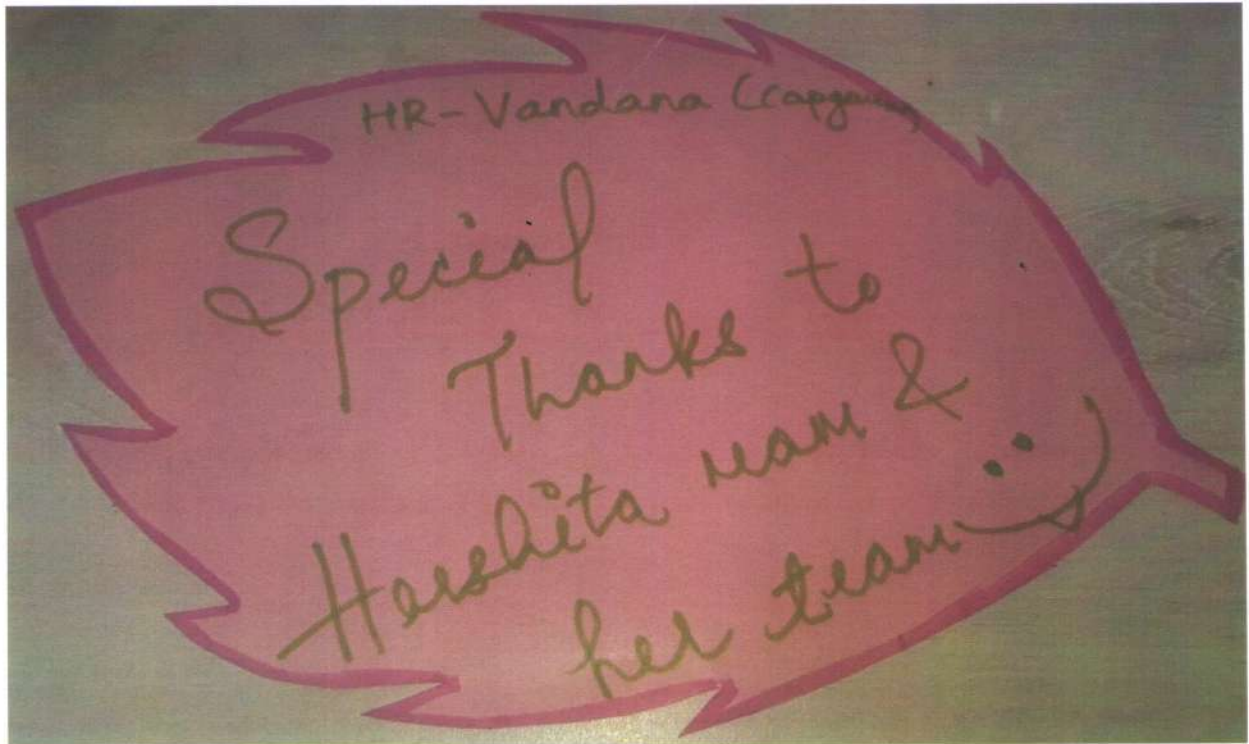 HR-Vandana
Special
Thanks to
Harshita mam &
her team